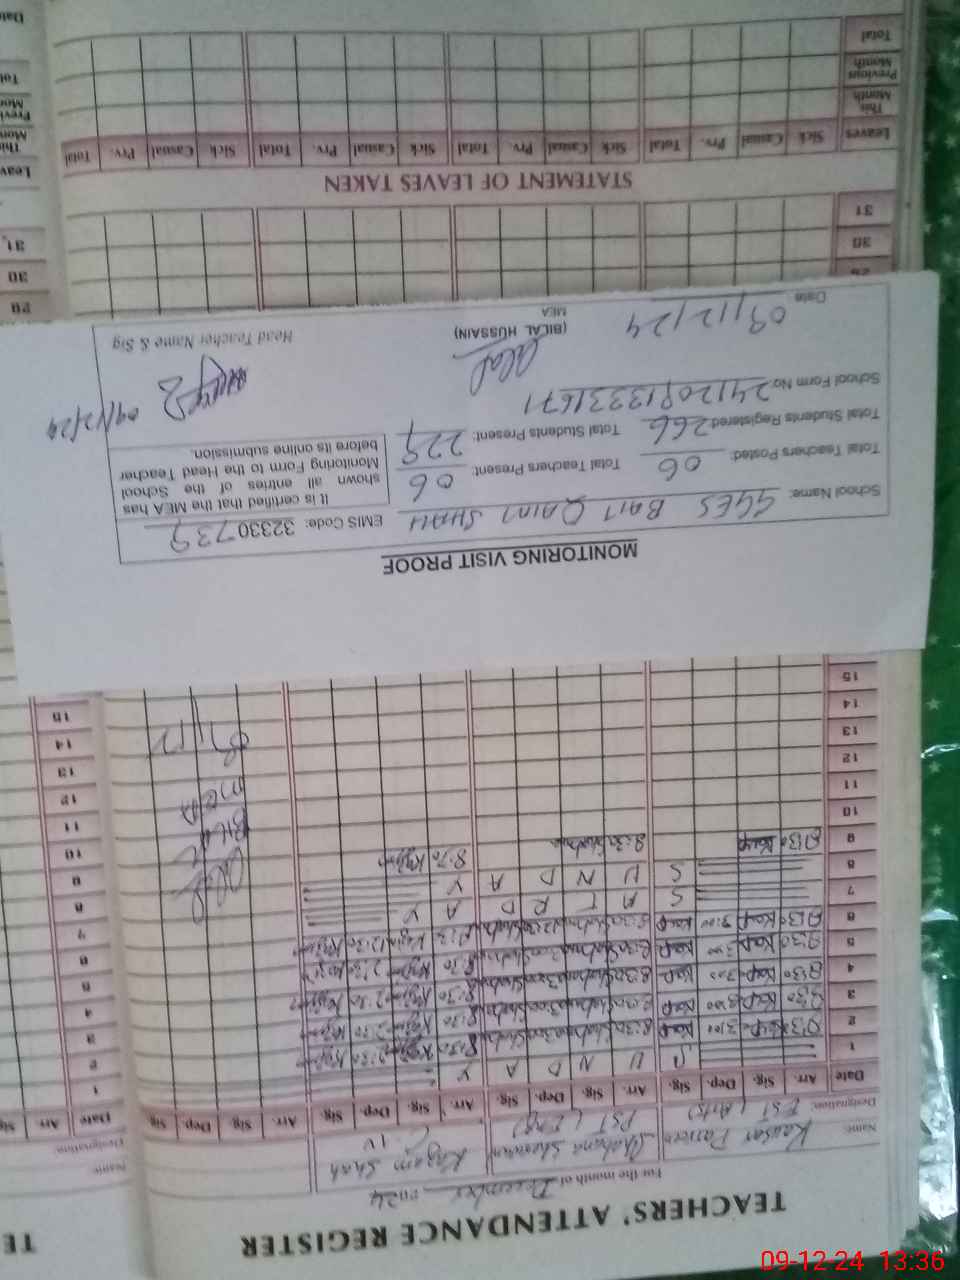 TEACHERS' ATTENDANCE REGISTER
TE
For the month of December 2024
Name: Kausar Parveen Shabana Shereen Kazam Shah
Designation: EST (Arts) PST (Eng) C.IV
Name:
Designation:
Date Arr. Sig. Dep. Sig. Arr. Sig. Dep. Sig. Arr. Sig. Dep. Sig. Arr. Sig. Dep. Sig.
Date Arr. Sig
1 S U N D A Y
2 8:30 3:00 8:30 3:00 8:30 2:30
3 8:30 3:00 8:30 3:00 8:30 2:30
4 8:30 3:00 8:30 3:00 8:30 2:30
5 8:30 3:00 8:30 3:00 8:30 2:30
6 8:30 3:00 8:30 12:30
7 S A T R D A Y
8 S U N D A Y
9 8:30 8:30 8:30
10
11
12
13
14
15
1
2
3
4
5
6
7
8
9
10
11
12
13
14
15
Bilal
MEA
9/12
MONITORING VISIT PROOF
School Name: GGES BAIT QAIM SHAH EMIS Code: 32330739
Total Teachers Posted: 06 Total Teachers Present: 06
Total Students Registered: 266 Total Students Present: 229
School Form No: 24120913331671
It is certified that the MEA has
shown all entries of the School
Monitoring Form to the Head Teacher
before its online submission.
09/12/24
(BILAL HUSSAIN)
MEA
Date 09/12/24
Head Teacher Name & Sig
29
30
31
29
30
31
STATEMENT OF LEAVES TAKEN
Leaves Sick Casual Prv. Total Sick Casual Prv. Total Sick Casual Prv. Total Sick Casual Prv. Total
This Month
Previous Month
Total
Leav
This
Mon
Previ
Mon
Tot
Date
09-12-24 13:36